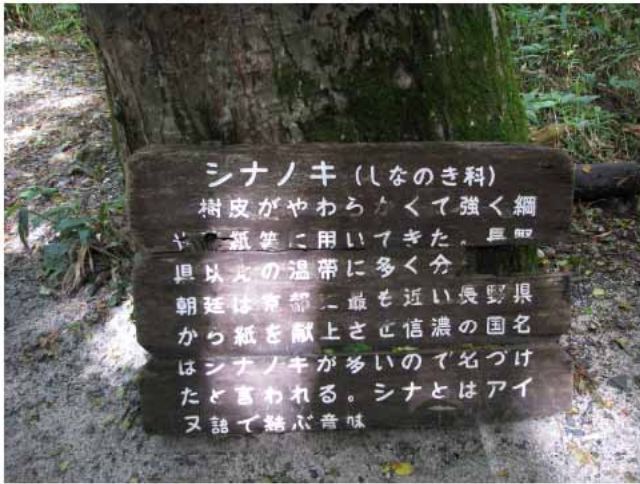 シナノキ (しなのき科)
樹皮がやわらかくて強く綱
紙等に用いてきた。長野
県以北の温帯に多く分
朝廷は京都に最も近い長野県
から紙を献上させ信濃の国名
はシナノキが多いので名づけ
たと言われる。シナとはアイ
ヌ語で結ぶ意味